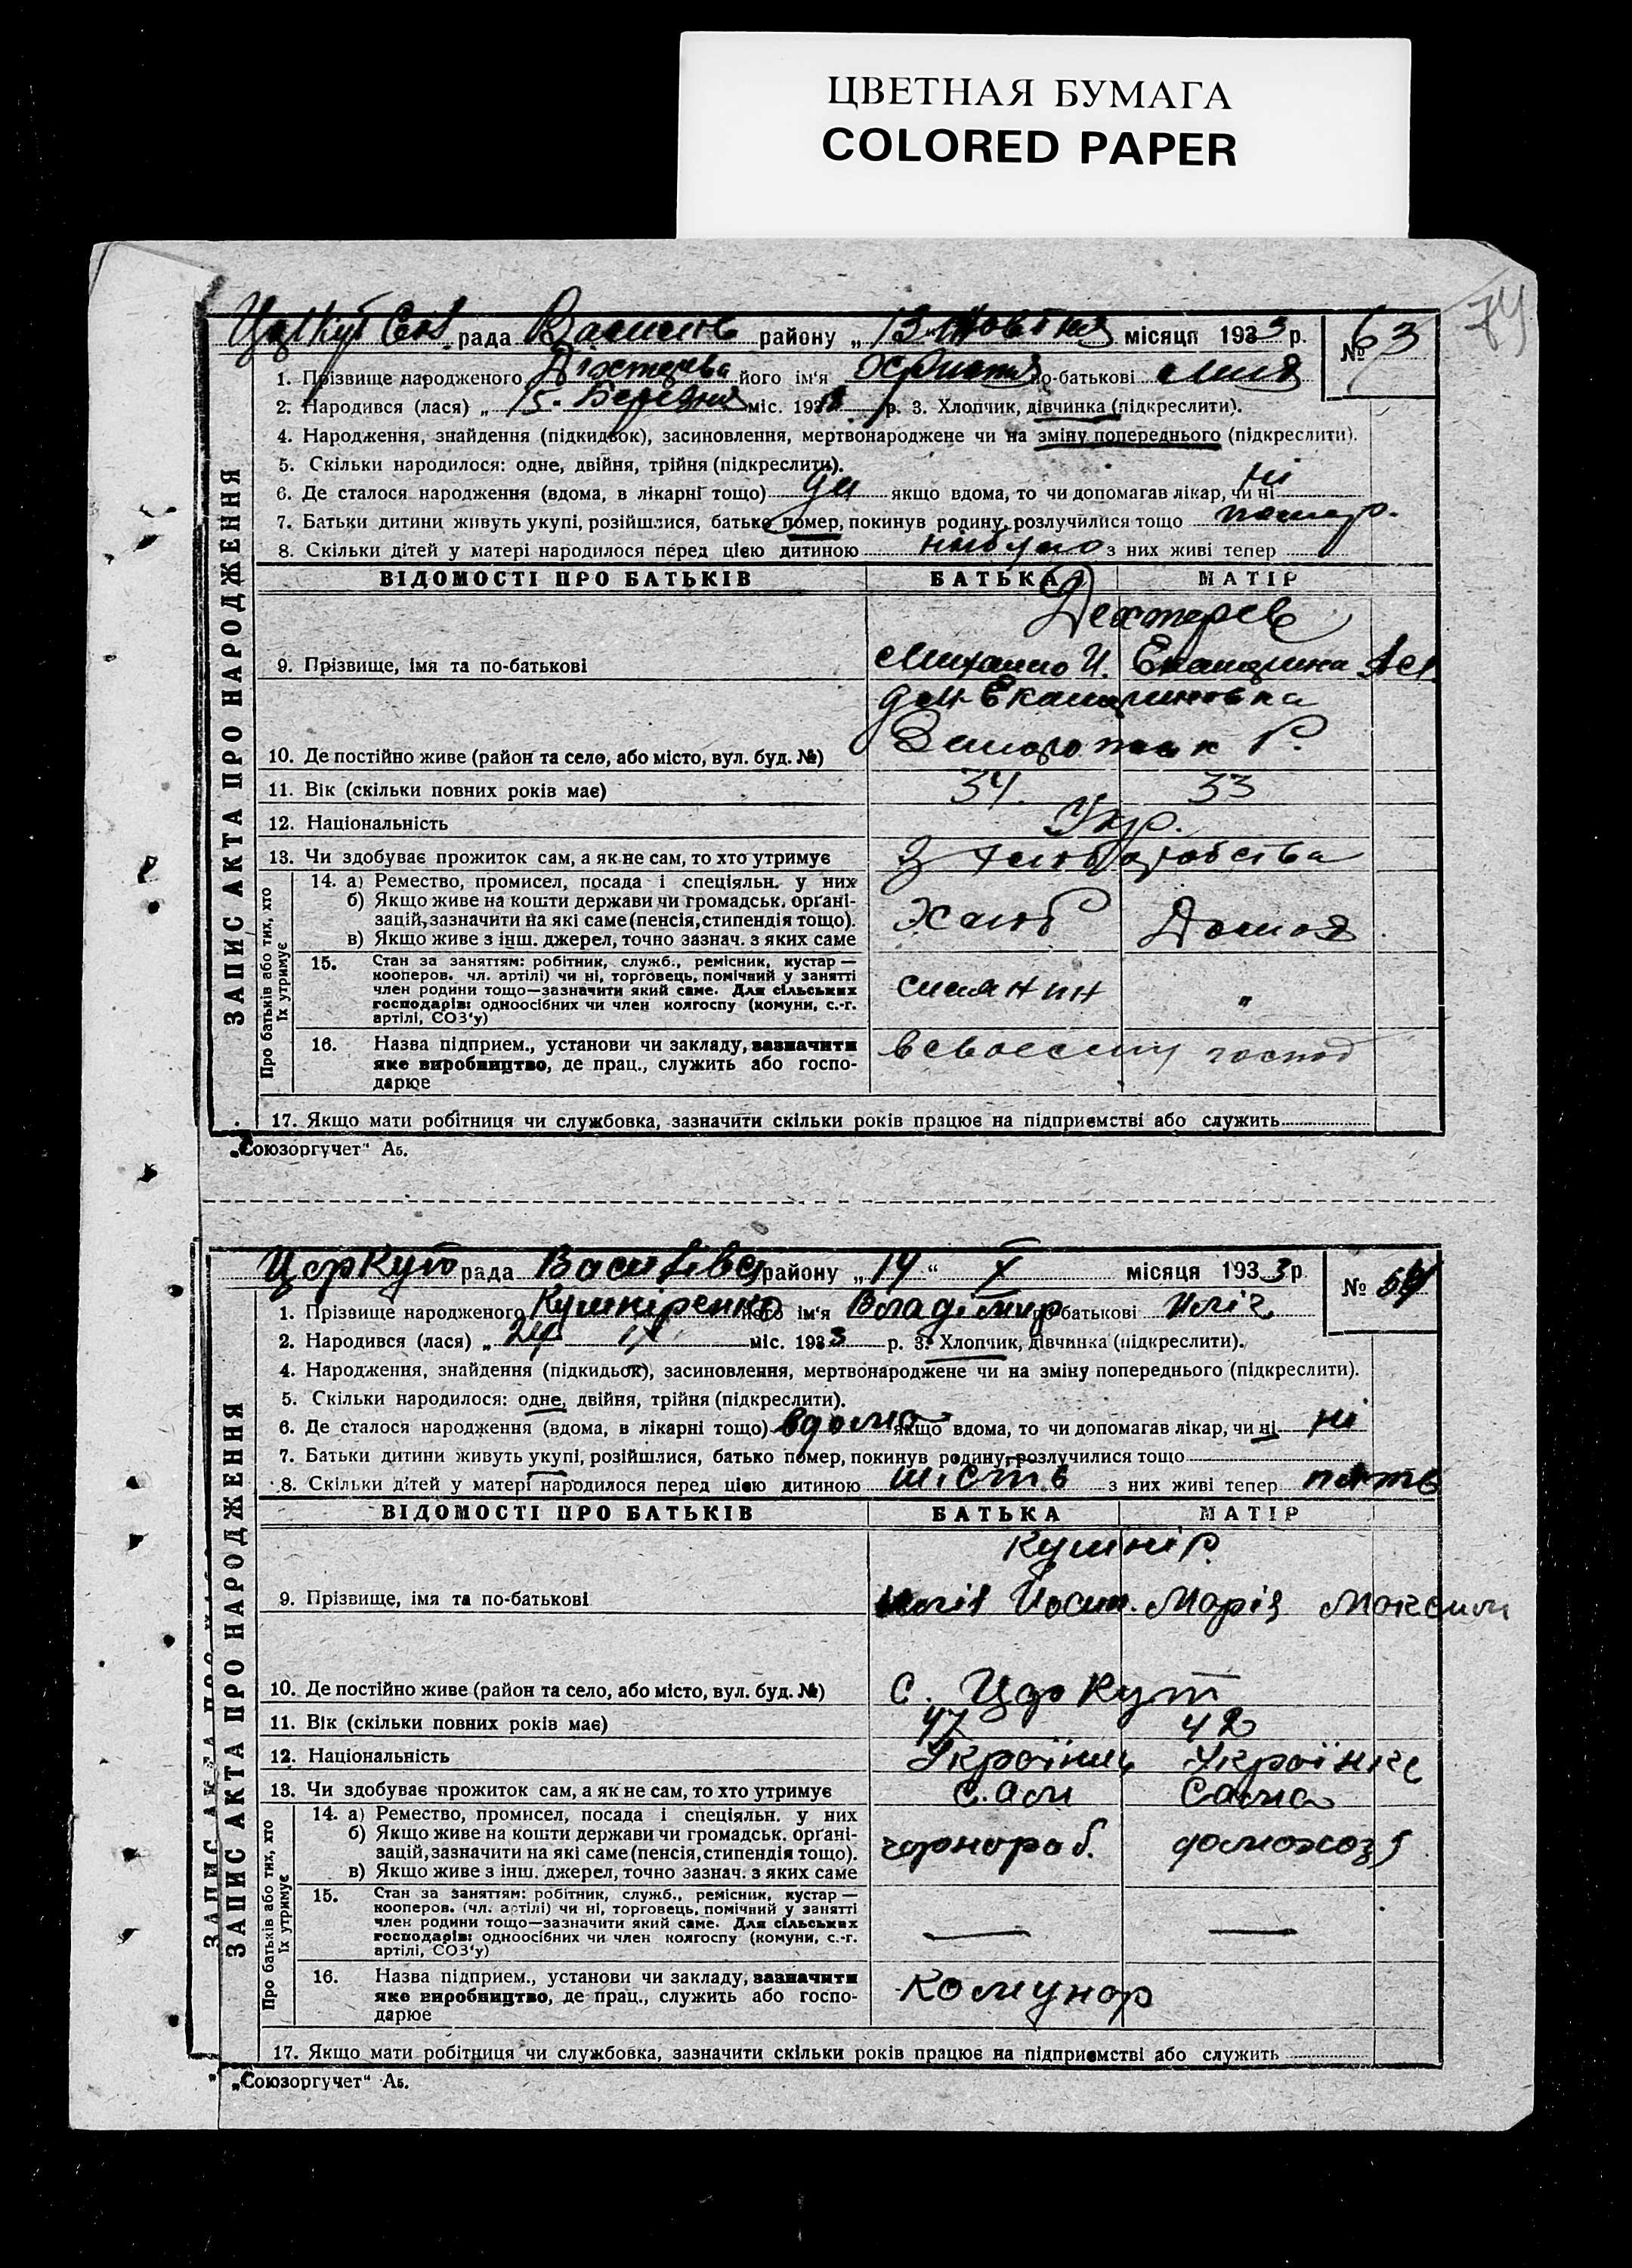 ЦВЕТНАЯ БУМАГА
COLORED PAPER
74
рада район у „13“ Жовтня місяця 1933 р. № 63
1. Прізвище народженого його ім'я по-батькові
2. Народився (лася) „15. Березня міс. 19 р. 3. Хлопчик, дівчинка (підкреслити).
4. Народження, знайдення (підкидьок), засиновлення, мертвонароджене чи на зміну попереднього (підкреслити).
5. Скільки народилося: одне, двійня, трійня (підкреслити).
6. Де сталося народження (вдома, в лікарні тощо) якщо вдома, то чи допомагав лікар, чи ні ні
7. Батьки дитини живуть укупі, розійшлися, батько помер, покинув родину, розлучилися тощо
8. Скільки дітей у матері народилося перед цією дитиною з них живі тепер
ЗАПИС АКТА ПРО НАРОДЖЕННЯ
ВІДОМОСТІ ПРО БАТЬКІВ БАТЬКА МАТІР
Дехтерев
9. Прізвище, імя та по-батькові Михайло И. Екатерина
Екатериновка
10. Де постійно живе (район та село, або місто, вул. буд. №) Р.
11. Вік (скільки повних років має) 34. 33
12. Національність Укр.
13. Чи здобуває прожиток сам, а як не сам, то хто утримує З хліборобства
Про батьків або тих, хто їх утримує
14. а) Ремество, промисел, посада і спеціяльн. у них
б) Якщо живе на кошти держави чи громадськ. органі-
зацій, зазначити на які саме (пенсія, стипендія тощо). Хліб Домоз
в) Якщо живе з інш. джерел, точно зазнач. з яких саме
15. Стан за заняттям: робітник, служб., ремісник, кустар —
кооперов. чл. артілі) чи ні, торговець, помічний у занятті
член родини тощо—зазначити який саме. Для сільських
господарів: одноосібних чи член колгоспу (комуни, с.-г.
артілі, СОЗ'у)
силянин "
16. Назва підприєм., установи чи закладу, зазначити
яке виробництво, де прац., служить або госпо-
дарює
в своєму господ
17. Якщо мати робітниця чи службовка, зазначити скільки років працює на підприємстві або служить
„Союзоргучет“ А5.
Царкут рада Василівсь району „14“ X місяця 1933 р № 64
1. Прізвище народженого Кушніренко його ім'я Владімир по-батькові Иліч
2. Народився (лася) „24 IX міс. 1933 р. 3. Хлопчик, дівчинка (підкреслити).
4. Народження, знайдення (підкидьок), засиновлення, мертвонароджене чи на зміну попереднього (підкреслити).
5. Скільки народилося: одне, двійня, трійня (підкреслити).
6. Де сталося народження (вдома, в лікарні тощо) вдома якщо вдома, то чи допомагав лікар, чи ні ні
7. Батьки дитини живуть укупі, розійшлися, батько помер, покинув родину, розлучилися тощо
8. Скільки дітей у матері народилося перед цією дитиною шість з них живі тепер пять
ЗАПИС АКТА ПРО НАРОДЖЕННЯ
ВІДОМОСТІ ПРО БАТЬКІВ БАТЬКА МАТІР
Кушнір
9. Прізвище, імя та по-батькові Илія Йосип. Марія Максим
10. Де постійно живе (район та село, або місто, вул. буд. №) с. Царкут
11. Вік (скільки повних років має) 47 42
12. Національність Українець Українка
13. Чи здобуває прожиток сам, а як не сам, то хто утримує Сам Сама
Про батьків або тих, хто їх утримує
14. а) Ремество, промисел, посада і спеціяльн. у них
б) Якщо живе на кошти держави чи громадськ. органі-
зацій, зазначити на які саме (пенсія, стипендія тощо). чорнороб. домохоз
в) Якщо живе з інш. джерел, точно зазнач. з яких саме
15. Стан за заняттям: робітник, служб., ремісник, кустар —
кооперов. (чл. артілі) чи ні, торговець, помічний у занятті
член родини тощо—зазначити який саме. Для сільських
господарів: одноосібних чи член колгоспу (комуни, с.-г.
артілі, СОЗ'у)
— —
16. Назва підприєм., установи чи закладу, зазначити
яке виробництво, де прац., служить або госпо-
дарює
Комунар
17. Якщо мати робітниця чи службовка, зазначити скільки років працює на підприємстві або служить
„Союзоргучет“ А5.